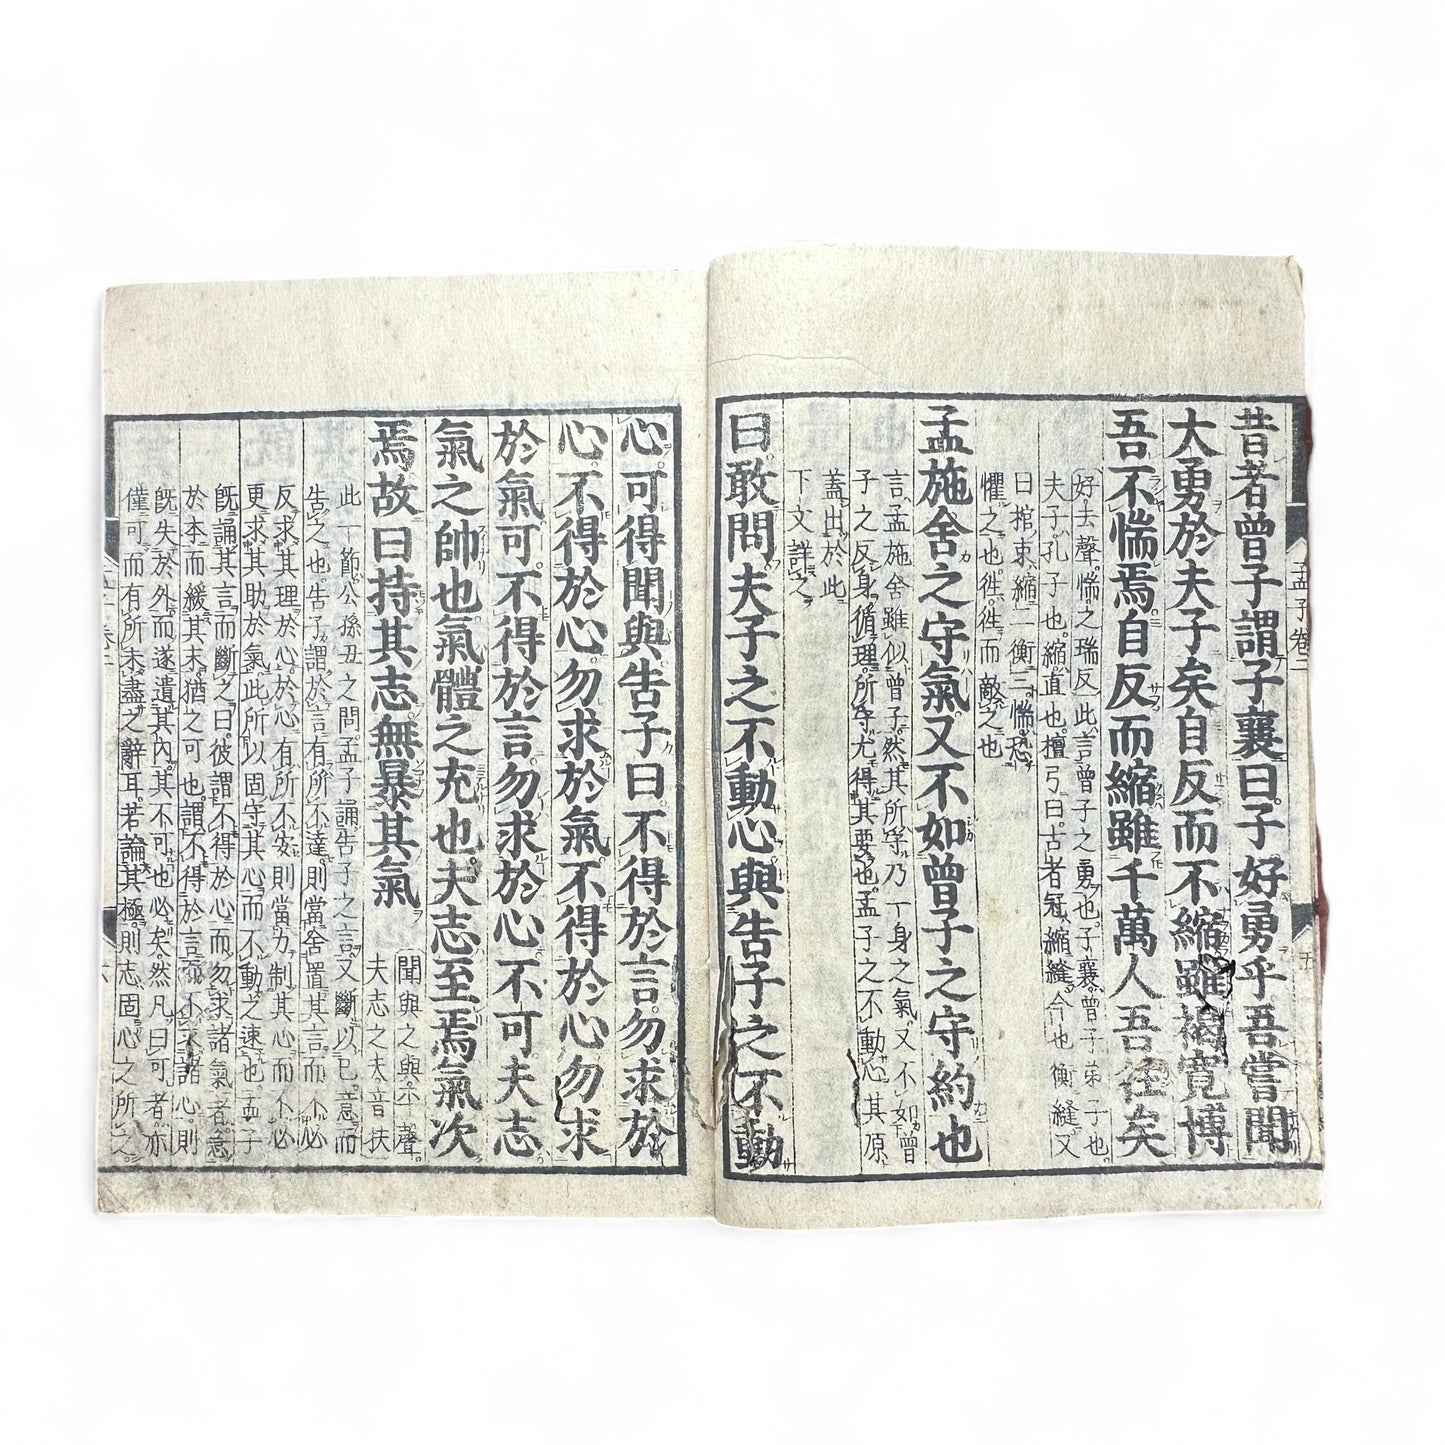 昔者曾子謂子襄曰子好勇乎吾嘗聞
大勇於夫子矣自反而不縮雖褐寬博
吾不惴焉自反而縮雖千萬人吾往矣
好去聲惴之瑞反此言曾子之勇也子襄曾子弟子也
夫子孔子也縮直也檀弓曰古者冠縮縫今也衡縫又
曰棺束縮二衡三惴恐
懼之也往往而敵之也
孟施舍之守氣又不如曾子之守約也
言孟施舍雖似曾子然其所守乃一身之氣又不如曾
子之反身循理所守尤得其要也孟子之不動心其原
蓋出於此
下文詳之
曰敢問夫子之不動心與告子之不動
心可得聞與告子曰不得於言勿求於
心不得於心勿求於氣不得於心勿求
於氣可不得於言勿求於心不可夫志
氣之帥也氣體之充也夫志至焉氣次
焉故曰持其志無暴其氣
聞與之與平聲
夫志之夫音扶
此一節公孫丑之問孟子誦告子之言又斷以己意而
告之也告子謂於言有所不達則當舍置其言而不必
反求其理於心於心有所不安則當力制其心而不必
更求其助於氣此所以固守其心而不動之速也孟子
既誦其言而斷之曰彼謂不得於心而勿求諸氣者急
於本而緩其末猶之可也謂不得於言而不求諸心則
既失於外而遂遺其內其不可也必矣然凡曰可者亦
僅可而有所未盡之辭耳若論其極則志固心之所之
孟子卷二
五